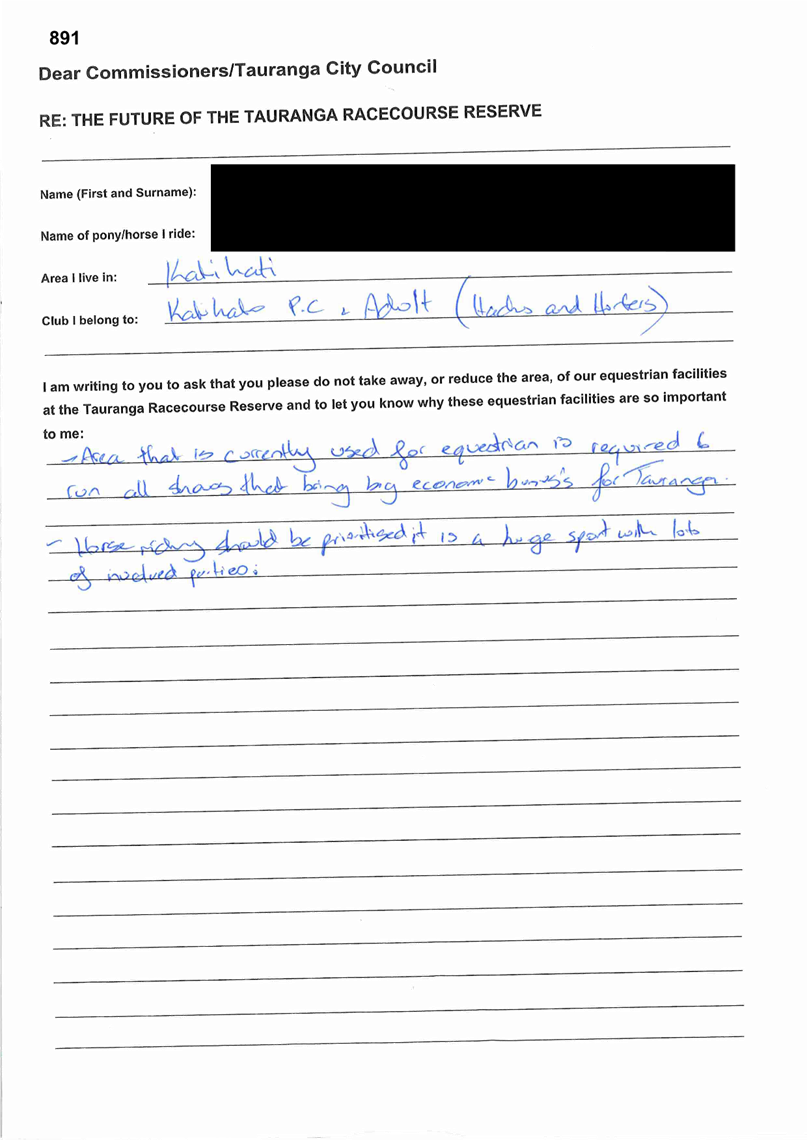 891
Dear Commissioners/Tauranga City Council
RE: THE FUTURE OF THE TAURANGA RACECOURSE RESERVE
Name (First and Surname):
Name of pony/horse I ride:
Area I live in: Katikati
Club I belong to: P.C & Adult (Hacks and Hunters)
I am writing to you to ask that you please do not take away, or reduce the area, of our equestrian facilities
at the Tauranga Racecourse Reserve and to let you know why these equestrian facilities are so important
to me:
- Area that is currently used for equestrian is required to
run all shows that bring big economic for Tauranga.
- Horse riding should be prioritised it is a huge sport with lots
of involved parties.